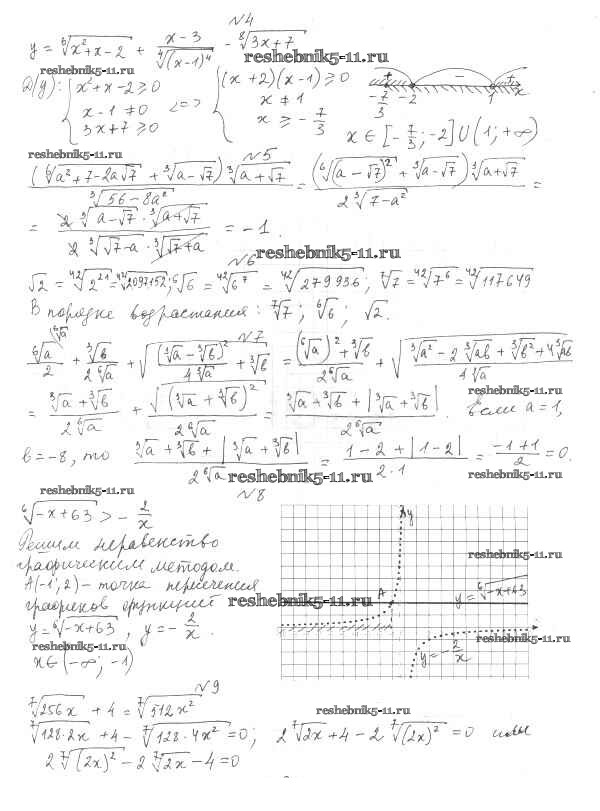 №4
y = \sqrt[6]{x²+x-2} + \frac{x-3}{\sqrt[4]{(x-1)^4}} - \sqrt[8]{3x+7}
reshebnik5-11.ru
reshebnik5-11.ru
D(y): { x²+x-2≥0 ; x-1≠0 ; 3x+7≥0 <=> { (x+2)(x-1)≥0 ; x≠1 ; x≥-\frac{7}{3}
+ - + -\frac{7}{3} -2 1 x
x∈[-\frac{7}{3};-2]∪(1;+∞)
reshebnik5-11.ru
№5
\frac{(\sqrt[6]{a²+7-2a√7} + \sqrt[3]{a-√7})\sqrt[3]{a+√7}}{\sqrt[3]{56-8a²}} = \frac{(\sqrt[6]{(a-√7)²} + \sqrt[3]{a-√7})\sqrt[3]{a+√7}}{2\sqrt[3]{7-a²}} =
= \frac{2\sqrt[3]{a-√7}·\sqrt[3]{a+√7}}{2\sqrt[3]{√7-a}·\sqrt[3]{√7+a}} = -1.
№6
reshebnik5-11.ru
√2 = \sqrt[42]{2^{21}} = \sqrt[42]{2097152}; \sqrt[6]{6} = \sqrt[42]{6^7} = \sqrt[42]{279936}; \sqrt[7]{7} = \sqrt[42]{7^6} = \sqrt[42]{117649}
В порядке возрастания: \sqrt[7]{7}; \sqrt[6]{6}; √2.
№7
\frac{\sqrt[6]{a}}{2} + \frac{\sqrt[3]{b}}{2\sqrt[6]{a}} + \sqrt{\frac{(\sqrt[3]{a}-\sqrt[3]{b})²}{4\sqrt[3]{a}} + \sqrt[3]{b}} = \frac{(\sqrt[6]{a})²+\sqrt[3]{b}}{2\sqrt[6]{a}} + \sqrt{\frac{\sqrt[3]{a²}-2\sqrt[3]{ab}+\sqrt[3]{b²}+4\sqrt[3]{ab}}{4\sqrt[3]{a}}}
reshebnik5-11.ru
= \frac{\sqrt[3]{a}+\sqrt[3]{b}}{2\sqrt[6]{a}} + \frac{\sqrt{(\sqrt[3]{a}+\sqrt[3]{b})²}}{2\sqrt[6]{a}} = \frac{\sqrt[3]{a}+\sqrt[3]{b}+|\sqrt[3]{a}+\sqrt[3]{b}|}{2\sqrt[6]{a}}. если a=1,
b=-8, то \frac{\sqrt[3]{a}+\sqrt[3]{b}+|\sqrt[3]{a}+\sqrt[3]{b}|}{2\sqrt[6]{a}} = \frac{1-2+|1-2|}{2·1} = \frac{-1+1}{2} = 0.
reshebnik5-11.ru
№8
reshebnik5-11.ru
\sqrt[6]{-x+63} > -\frac{2}{x}
Решим неравенство
графическим методом.
A(-1;2) – точка пересечения
графиков функций
y=\sqrt[6]{-x+63}, y=-\frac{2}{x}.
reshebnik5-11.ru
x∈(-∞;-1)
y
reshebnik5-11.ru
A
y=\sqrt[6]{-x+63}
reshebnik5-11.ru
reshebnik5-11.ru
y=-\frac{2}{x}
№9
\sqrt[7]{256x} + 4 = \sqrt[7]{512x²}
reshebnik5-11.ru
\sqrt[7]{128·2x} + 4 - \sqrt[7]{128·4x²} = 0; 2\sqrt[7]{2x} + 4 - 2\sqrt[7]{(2x)²} = 0 или
2\sqrt[7]{(2x)²} - 2\sqrt[7]{2x} - 4 = 0